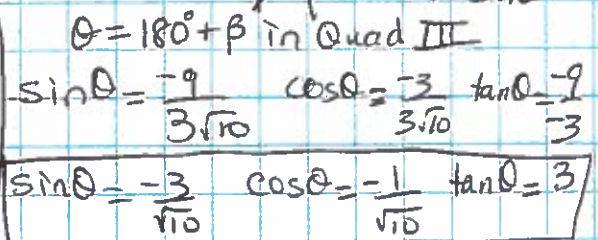 θ = 180° + β in Quad III
sinθ = -9/3√10 cosθ = -3/3√10 tanθ = -9/-3
sinθ = -3/√10 cosθ = -1/√10 tanθ = 3